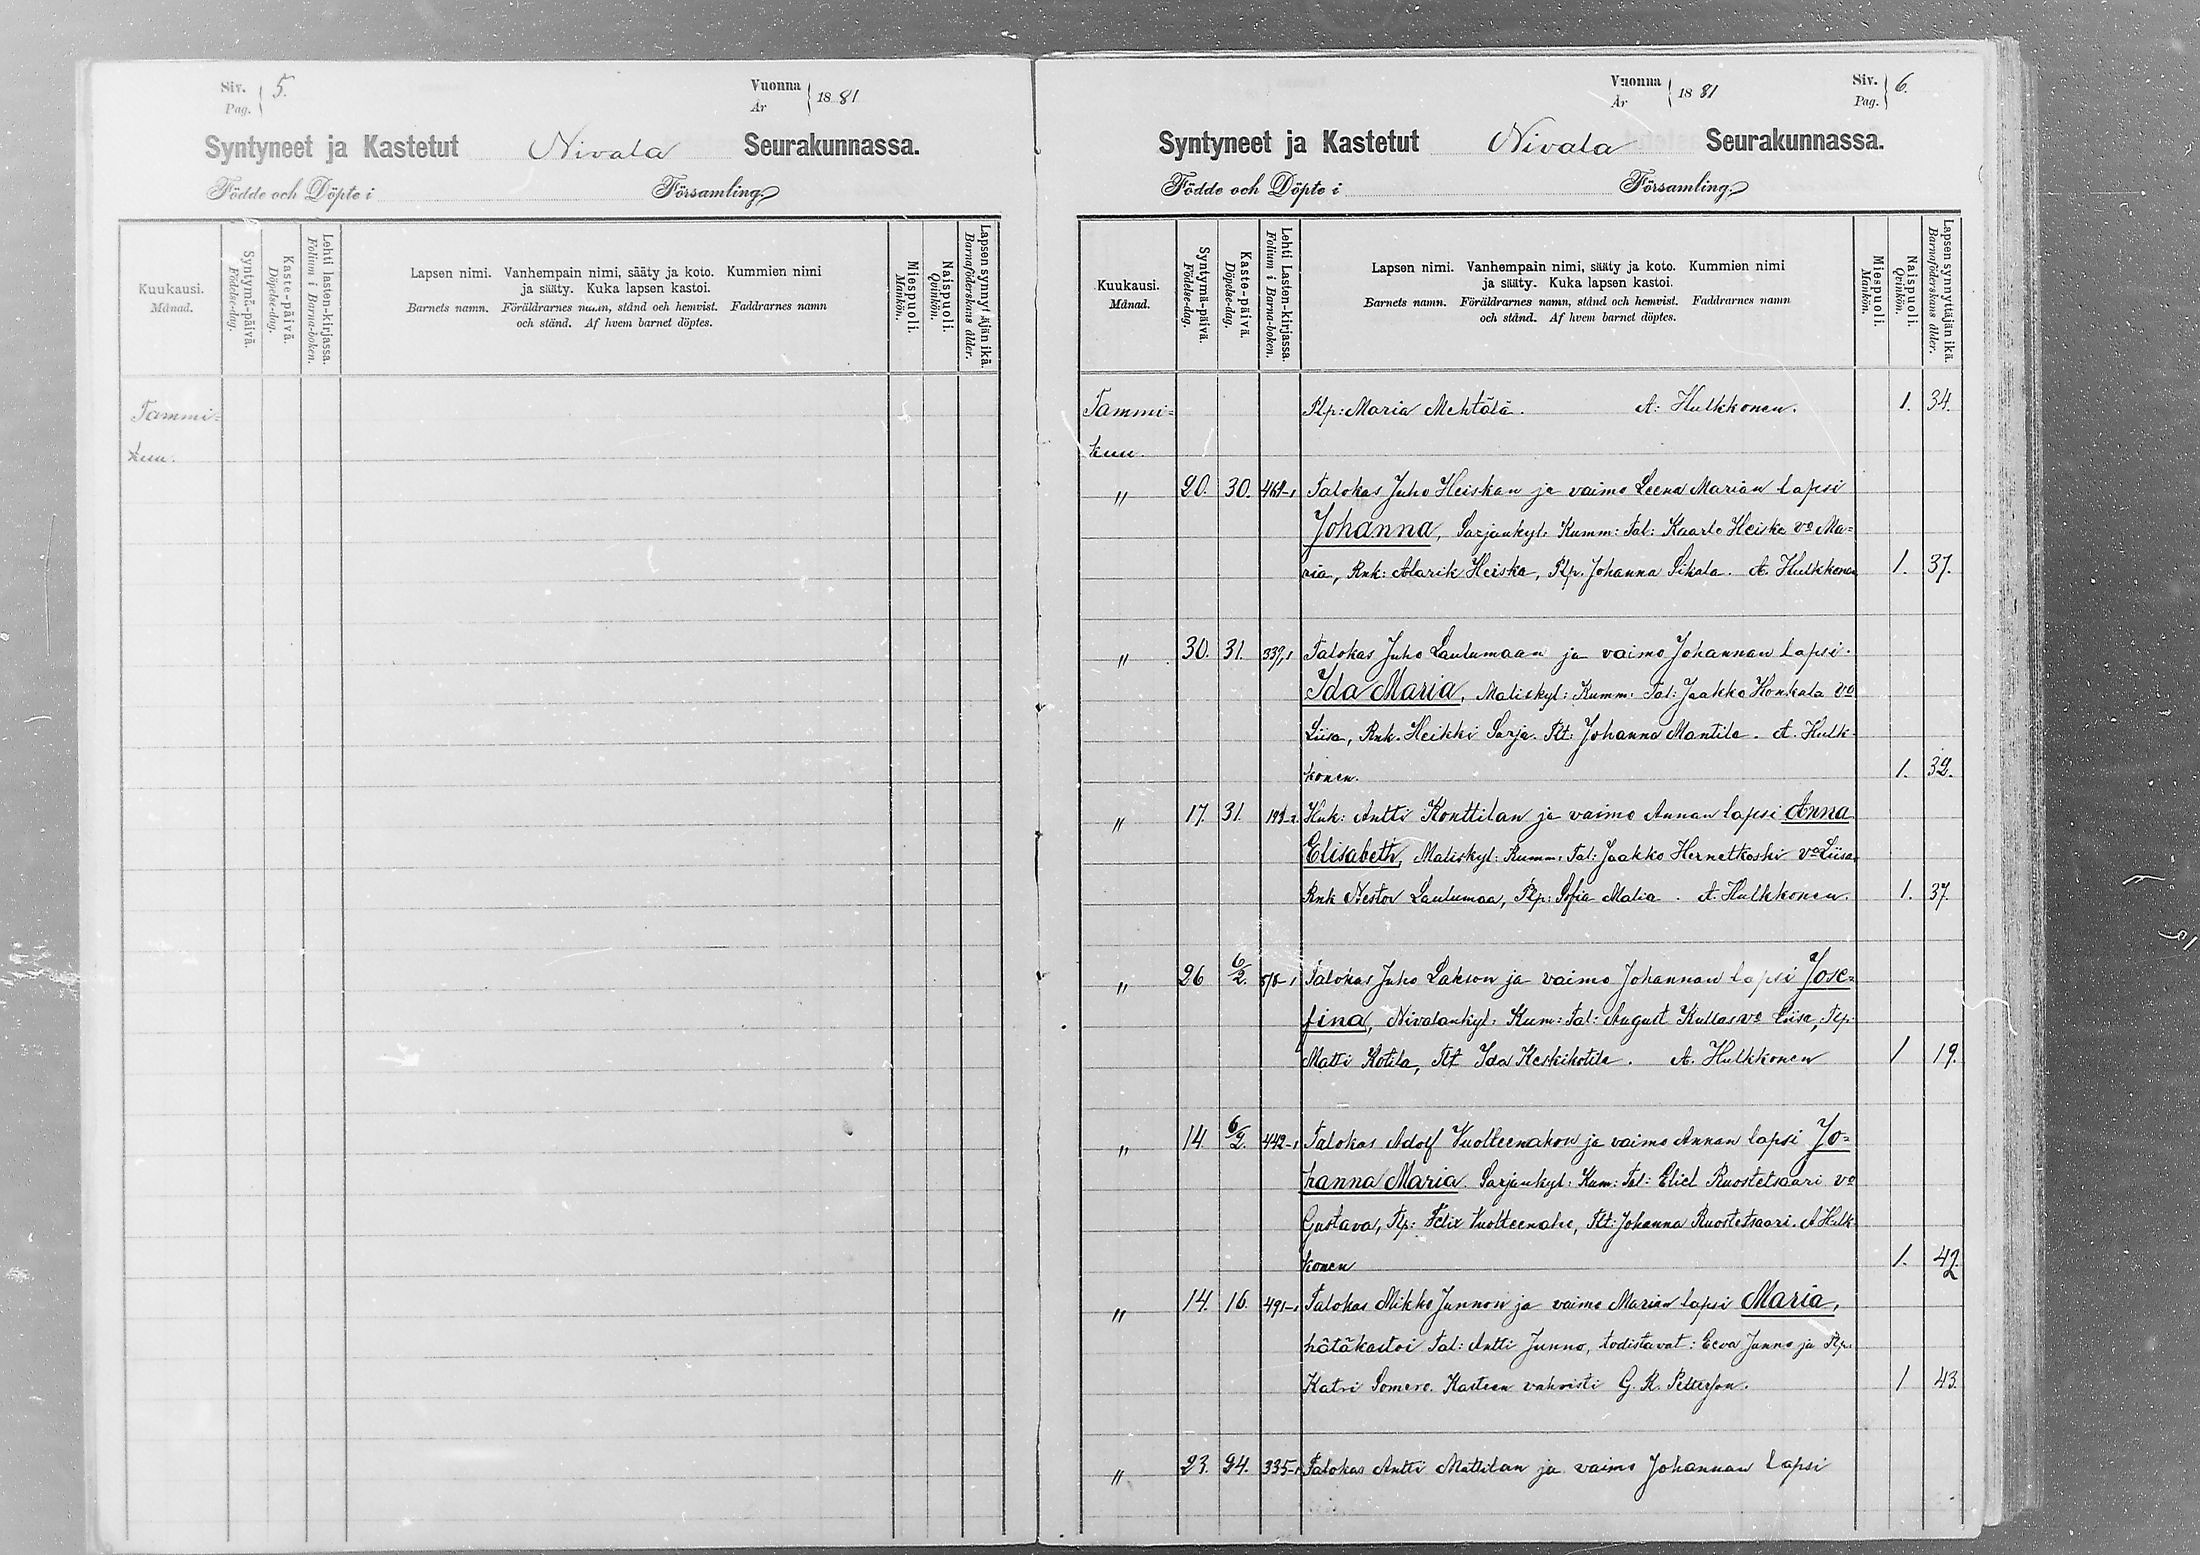 Siv.
Pag. 5.
Vuonna
År 1881
Syntyneet ja Kastetut Nivala Seurakunnassa.
Födde och Döpte i Församling.
Kuukausi.
Månad.
Syntymä-päivä.
Födelse-dag.
Kaste-päivä.
Döpelse-dag.
Lehti lasten-kirjassa.
Folium i Barna-boken.
Lapsen nimi. Vanhempain nimi, sääty ja koto. Kummien nimi
ja sääty. Kuka lapsen kastoi.
Barnets namn. Föräldrarnes namn, stånd och hemvist. Faddrarnes namn
och stånd. Af hvem barnet döptes.
Miespuoli.
Mankön.
Naispuoli.
Qvinkön.
Lapsen synnyttäjän ikä.
Barnaföderskans ålder.
Tammi=
kuu.
Vuonna
År 1881
Siv.
Pag. 6.
Syntyneet ja Kastetut Nivala Seurakunnassa.
Födde och Döpte i Församling.
Kuukausi.
Månad.
Syntymä-päivä.
Födelse-dag.
Kaste-päivä.
Döpelse-dag.
Lehti Lasten-kirjassa.
Folium i Barna-boken.
Lapsen nimi. Vanhempain nimi, sääty ja koto. Kummien nimi
ja sääty. Kuka lapsen kastoi.
Barnets namn. Föräldrarnes namn, stånd och hemvist. Faddrarnes namn
och stånd. Af hvem barnet döptes.
Miespuoli.
Mankön.
Naispuoli.
Qvinkön.
Lapsen synnyttäjän ikä.
Barnaföderskans ålder.
Tammi= Plp: Maria Mehtälä. A: Hulkkonen. 1. 34.
kuu.
" 20. 30. Talokas Juho Heiskan ja vaimo Leena Marian lapsi
Johanna, Sarjankyl: Kumm: Tal: Kaarlo Heiska vo Ma=
ria, Rnk: Alarik Heiska, Plp. Johanna Sikala. A. Hulkkonen 1. 37.
" 30. 31. 339,1 Talokas Juho Laulumaan ja vaimo Johannan lapsi
Ida Maria, Maliskyl: Kumm: Tal: Jaakko Honkala vo
Liisa, Rnk. Heikki Sarja. Tlt: Johanna Mantila. A. Hulk
konen. 1. 32.
" 17. 31. Huk: Antti Konttilan ja vaimo Annan lapsi Anna
Elisabeth, Maliskyl: Kumm: Tal: Jaakko Hernetkoski vo Liisa
Rnk Nestor Laulumaa, Plp: Sofia Malia. A. Hulkkonen. 1. 37.
" 26 6/2. Talokas Juho Lakson ja vaimo Johannan lapsi Jose=
fina, Nivalankyl: Kum: Tal: August Kullas vo Liisa, Tlp:
Matti Kotila, Tlt Ida Keskikotila. A. Hulkkonen 1 19.
" 14 6/2. 442-1 Talokas Adolf Vuolteenahon ja vaimo Annan lapsi Jo=
hanna Maria Sarjankyl: Kum: Tal: Eliel Ruostetsaari vo
Gustava, Tlp: Felix Vuolteenaho, Tlt: Johanna Ruostetsaari. A Hulk
konen 1. 42.
" 14. 16. 491-1 Talokas Mikko Junnon ja vaimo Marian lapsi Maria,
hätäkastoi Tal: Antti Junno, todistavat: Eeva Junno ja Plp:
Katri Somero. Kasteen vahvisti G. R. Petterson. 1 43.
" 23. 24. 335-1 Talokas Antti Mattilan ja vaimo Johannan lapsi